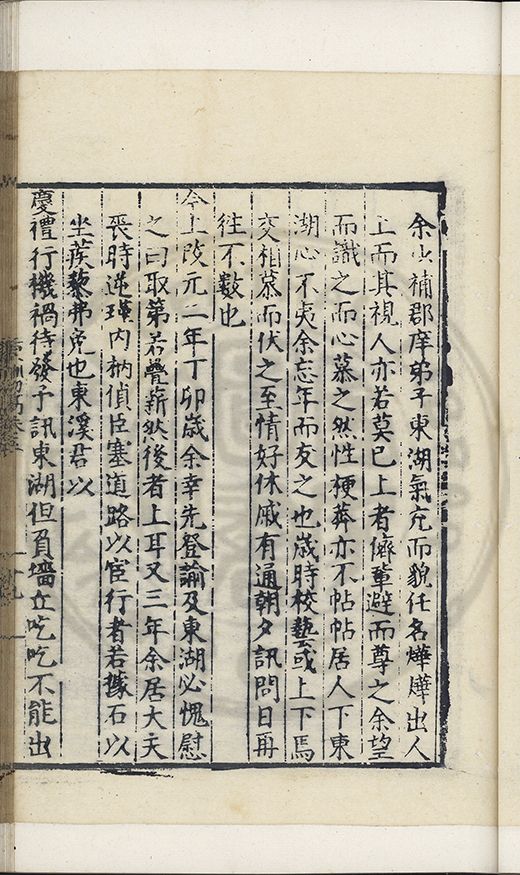 余少補郡庠弟子東湖氣充而貌任名燁燁出人
上而其視人亦若莫已上者儕輩避而尊之余望
而識之而心慕之然性梗莽亦不帖帖居人下東
湖心不夷余忘年而友之也歲時校藝或上下焉
交相慕而伏之至情好休戚有通朝夕訊問日再
往不數也
今上改元二年丁卯歲余幸先登諭及東湖必愧慰
之曰取第若疊薪然後者上耳又三年余居大夫
喪時逆瑾內衲偵臣塞道路以宦行者若據石以
坐蒺藜弗免也東溪君以
慶禮行機禍待發予訊東湖但負墻立吃吃不能出